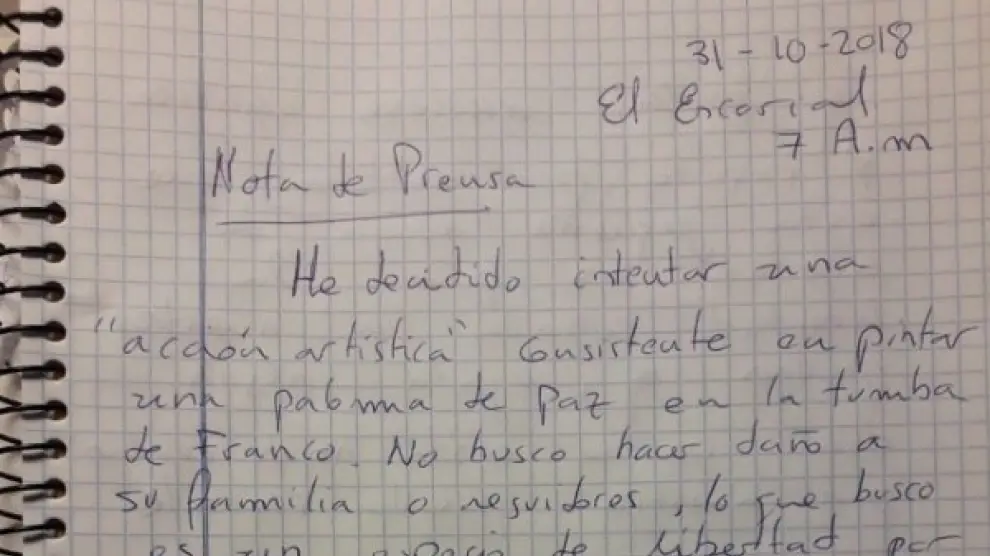 31-10-2018
El Escorial
7 A.m
Nota de Prensa
He decidido intentar una
"acción artística" consistente en pintar
una paloma de Paz en la tumba
de Franco. No busco hacer daño a
su familia o, lo que busco
es un de libertad por